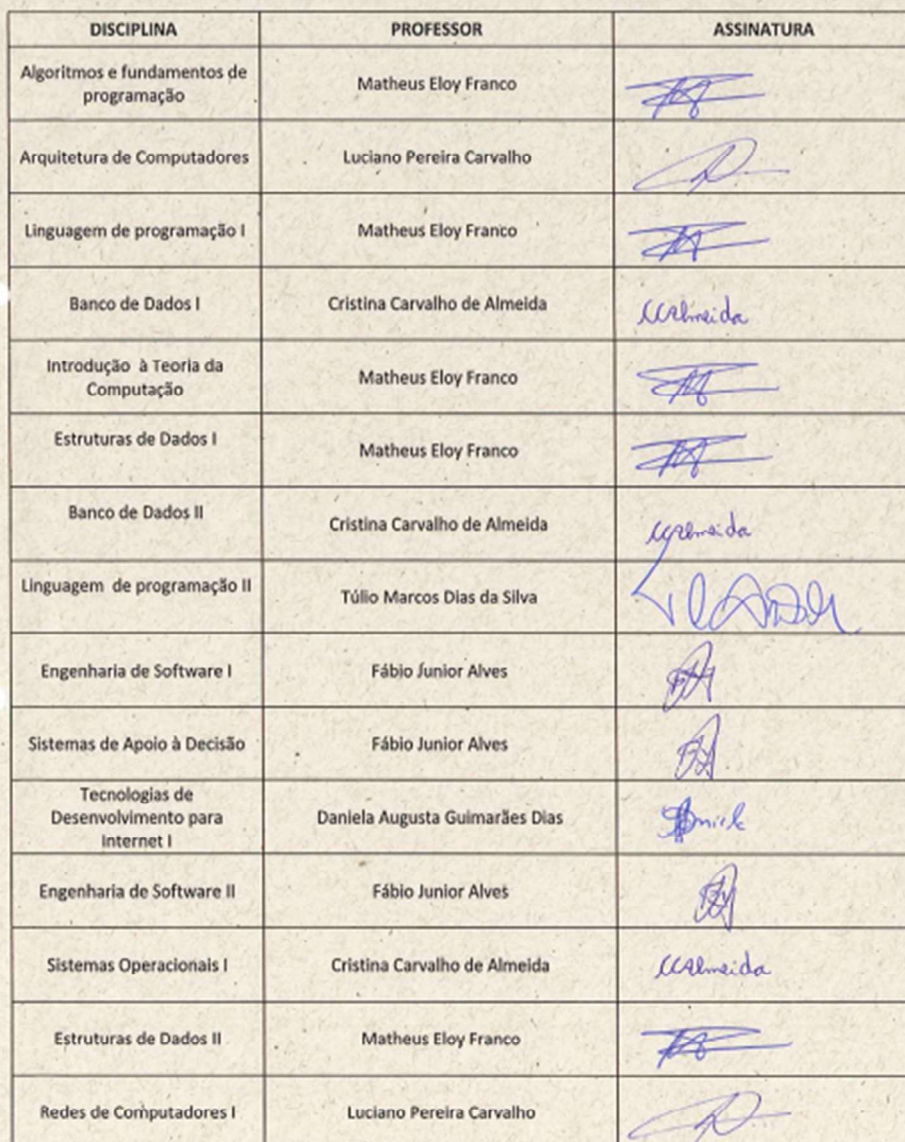 DISCIPLINA PROFESSOR ASSINATURA
Algoritmos e fundamentos de
programação
Matheus Eloy Franco
Arquitetura de Computadores Luciano Pereira Carvalho
Linguagem de programação I Matheus Eloy Franco
Banco de Dados I Cristina Carvalho de Almeida CCAlmeida
Introdução à Teoria da
Computação
Matheus Eloy Franco
Estruturas de Dados I Matheus Eloy Franco
Banco de Dados II Cristina Carvalho de Almeida CCAlmeida
Linguagem de programação II Túlio Marcos Dias da Silva
Engenharia de Software I Fábio Junior Alves
Sistemas de Apoio à Decisão Fábio Junior Alves
Tecnologias de
Desenvolvimento para
Internet I
Daniela Augusta Guimarães Dias
Engenharia de Software II Fábio Junior Alves
Sistemas Operacionais I Cristina Carvalho de Almeida CCAlmeida
Estruturas de Dados II Matheus Eloy Franco
Redes de Computadores I Luciano Pereira Carvalho